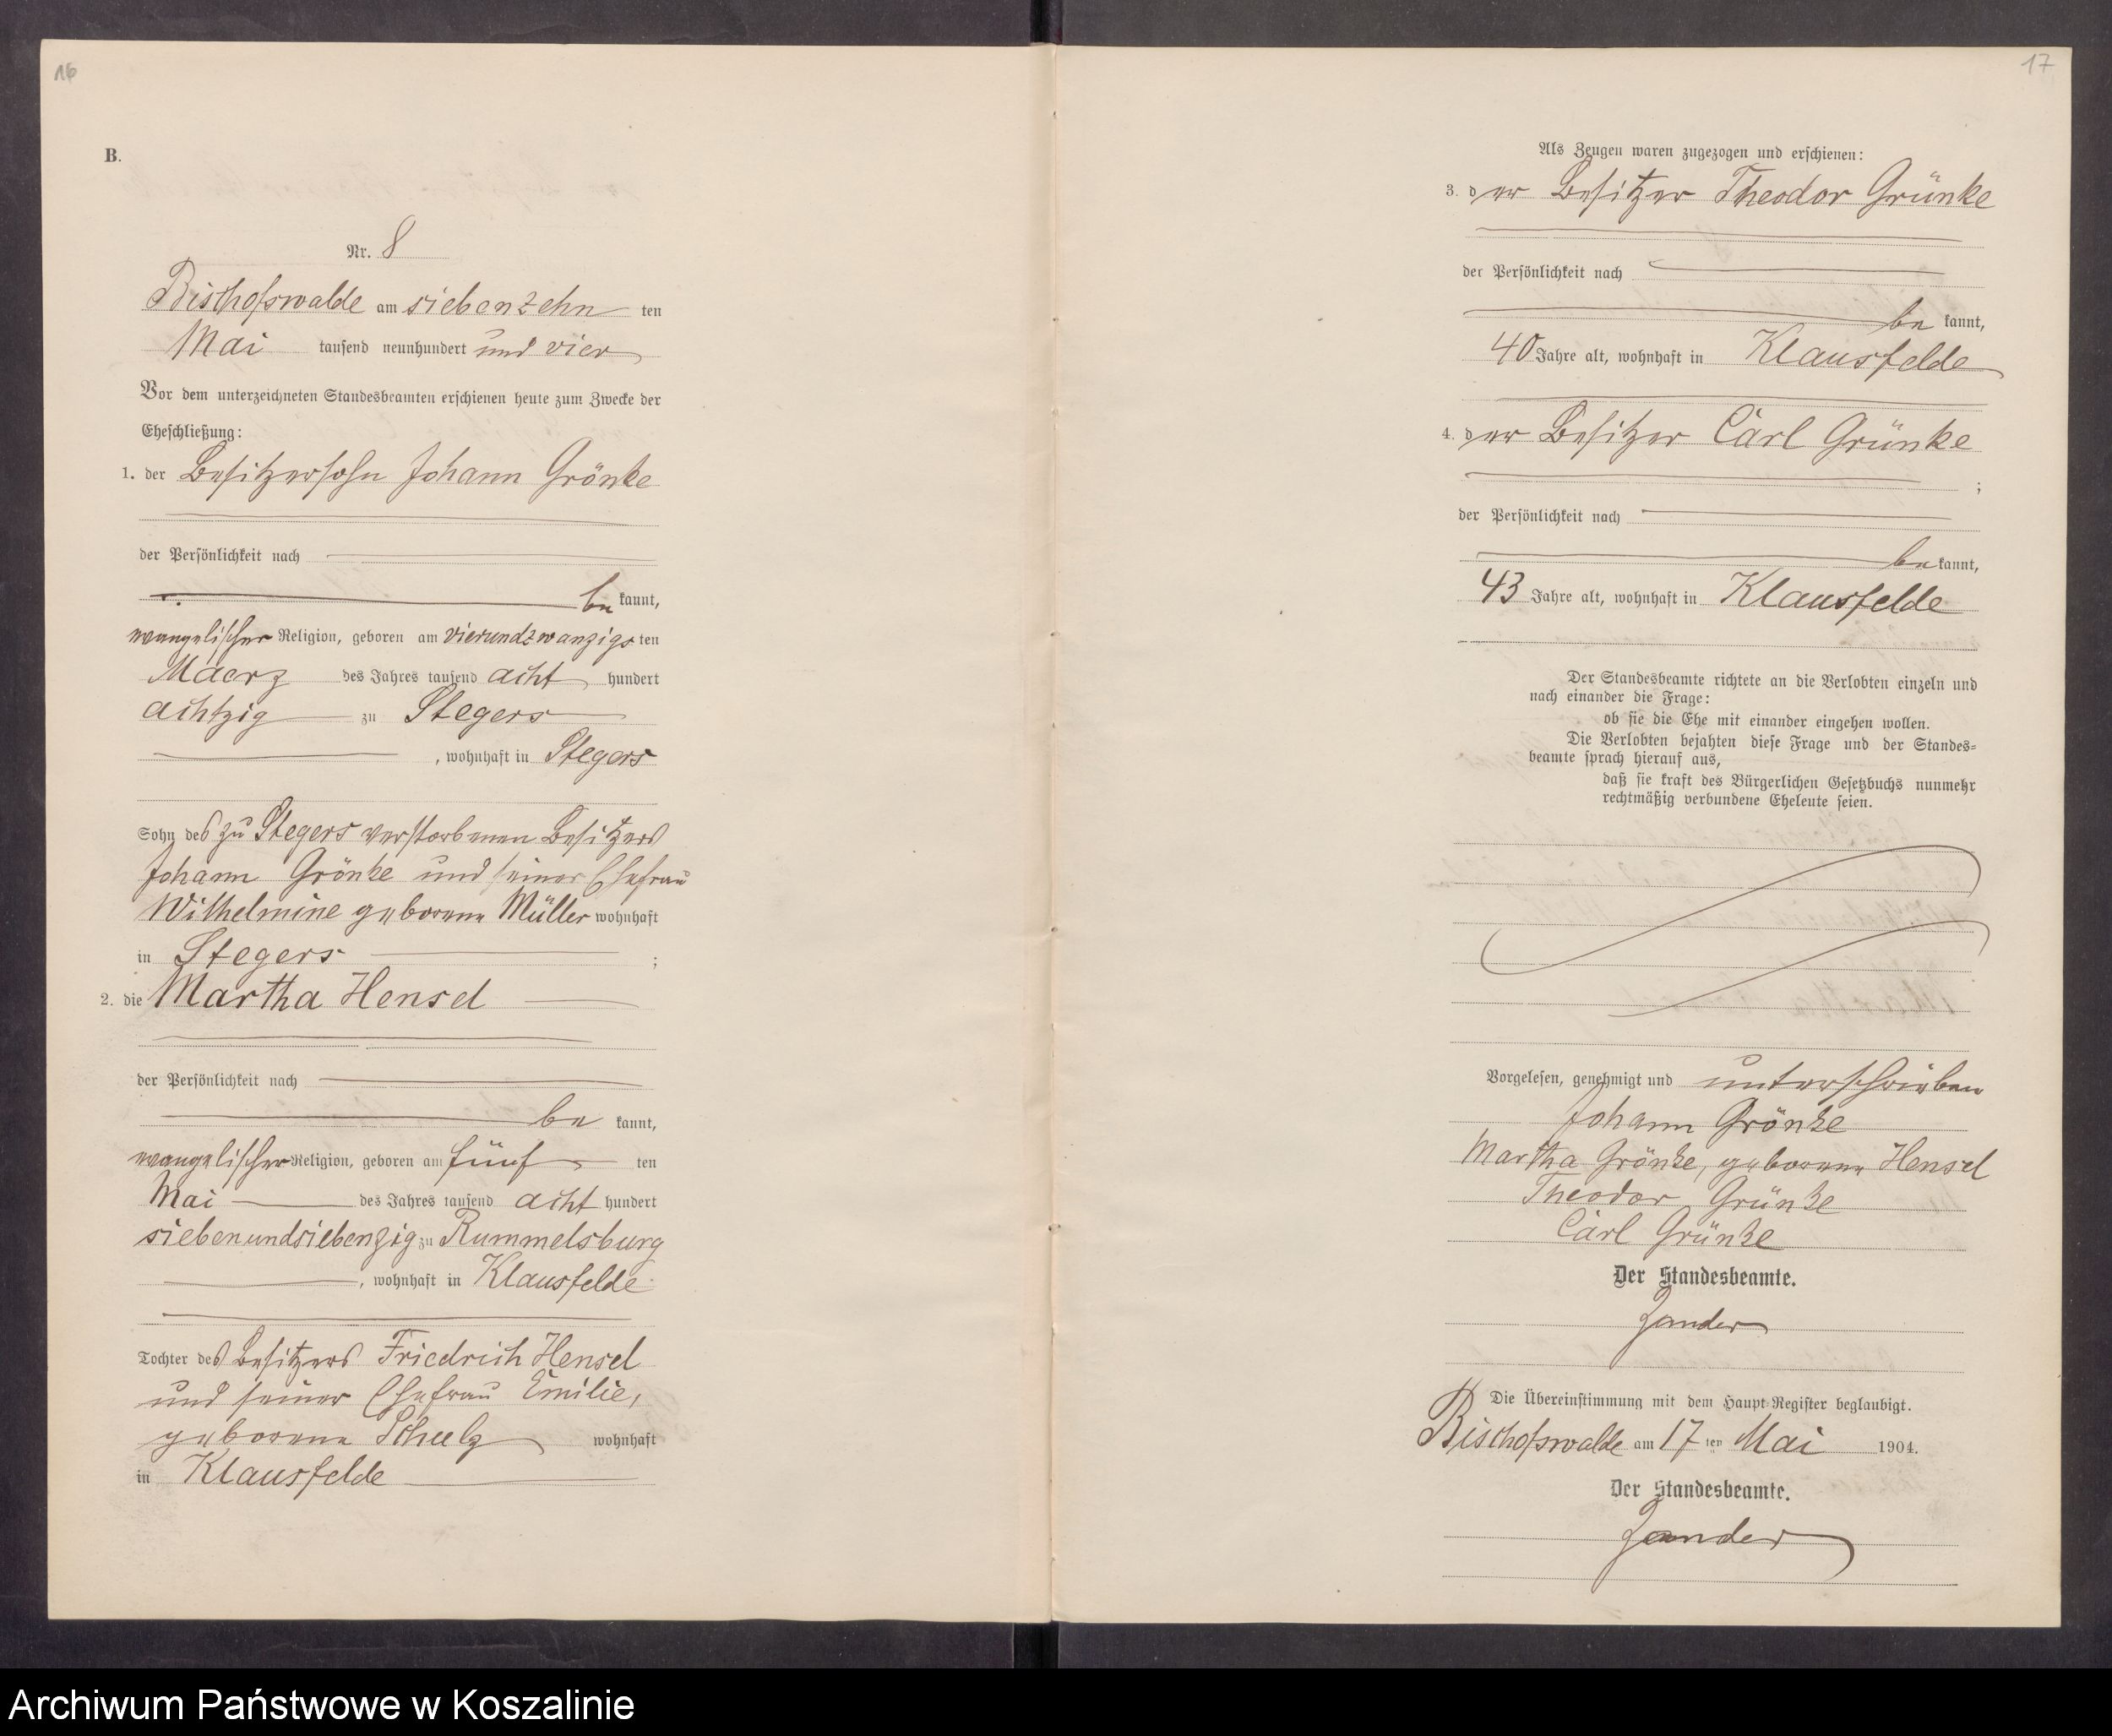 16
B.
Nr. 8
Bischofswalde am siebenzehn ten
Mai tausend neunhundert und vier
Vor dem unterzeichneten Standesbeamten erschienen heute zum Zwecke der
Eheschließung:
1. der Besitzersohn Johann Grönke
der Persönlichkeit nach
be kannt,
evangelischer Religion, geboren am vierundzwanzigs ten
Maerz des Jahres tausend acht hundert
achtzig zu Stegers
, wohnhaft in Stegers
Sohn des zu Stegers verstorbenen Besitzers
Johann Grönke und seiner Ehefrau
Wilhelmine geborene Müller wohnhaft
in Stegers ;
2. die Martha Hensel
der Persönlichkeit nach
be kannt,
evangelischer Religion, geboren am fünf ten
Mai des Jahres tausend acht hundert
siebenundsiebenzig zu Rummelsburg
, wohnhaft in Klausfelde
Tochter des Besitzers Friedrich Hensel
und seiner Ehefrau Emilie,
geborene Schulz wohnhaft
in Klausfelde
17
Als Zeugen waren zugezogen und erschienen:
3. der Besitzer Theodor Grünke
der Persönlichkeit nach
be kannt,
40 Jahre alt, wohnhaft in Klausfelde
4. der Besitzer Carl Grünke
;
der Persönlichkeit nach
be kannt,
43 Jahre alt, wohnhaft in Klausfelde
Der Standesbeamte richtete an die Verlobten einzeln und
nach einander die Frage:
ob sie die Ehe mit einander eingehen wollen.
Die Verlobten bejahten diese Frage und der Standes=
beamte sprach hierauf aus,
daß sie kraft des Bürgerlichen Gesetzbuchs nunmehr
rechtmäßig verbundene Eheleute seien.
Vorgelesen, genehmigt und unterschrieben
Johann Grönke
Martha Grönke, geborene Hensel
Theodor Grünke
Carl Grünke
Der Standesbeamte.
Zander
Die Übereinstimmung mit dem Haupt-Register beglaubigt.
Bischofswalde am 17 ten Mai 1904.
Der Standesbeamte.
Zander
Archiwum Państwowe w Koszalinie